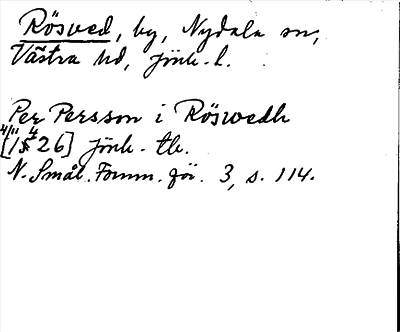 Rösved, by, Nydala sn,
Västra hd, Jönk. l.
Per Persson i Röswedh
4/11 [1526] 4 Jönk. tb.
N. Smål. Fornm. för. 3, s. 114.